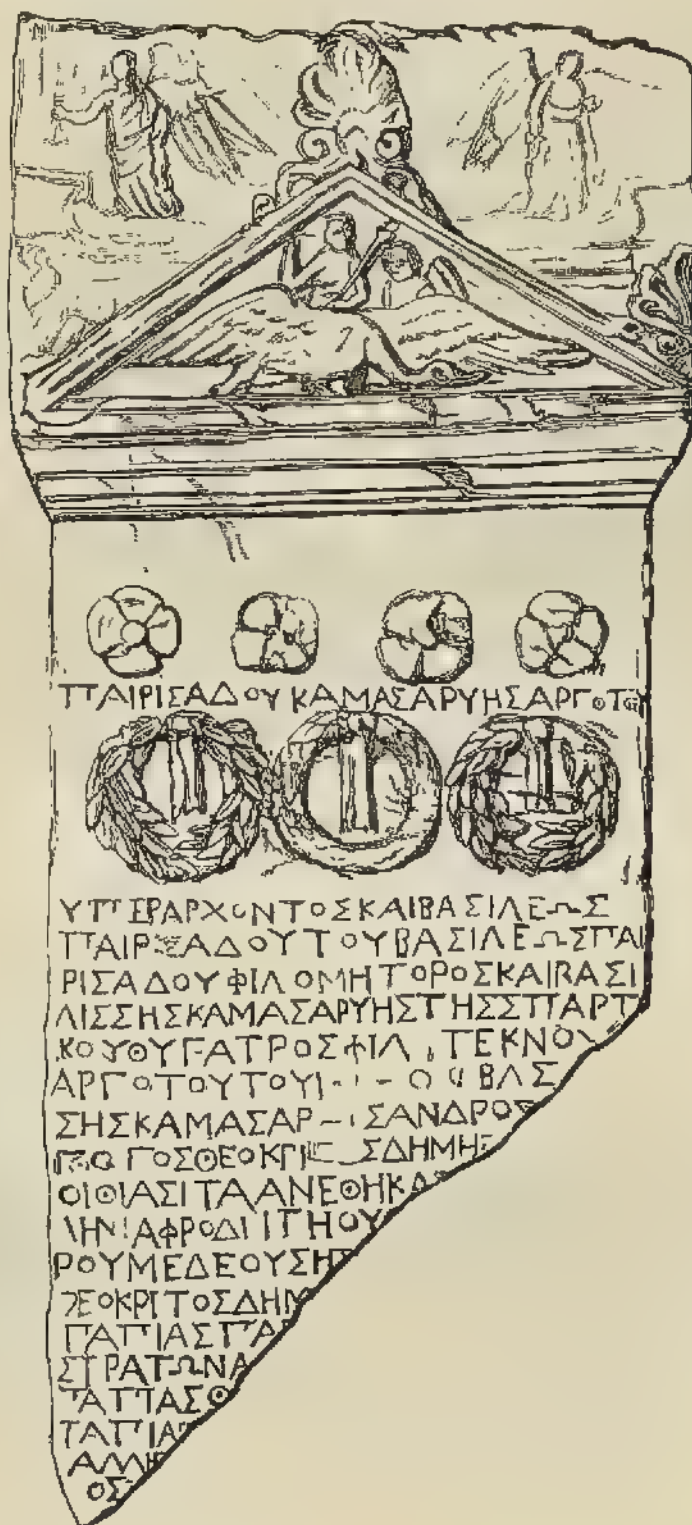 ΠΑΙΡΙΣΑΔΟΥΚΑΜΑΣΑΡΥΗΣΑΡΓΟΤΟΥ
ΥΠΕΡΑΡΧΟΝΤΟΣΚΑΙΒΑΣΙΛΕΩΣ
ΠΑΙΡΙΣΑΔΟΥΤΟΥΒΑΣΙΛΕΩΣΠΑΙ
ΡΙΣΑΔΟΥΦΙΛΟΜΗΤΟΡΟΣΚΑΙΒΑΣΙ
ΛΙΣΣΗΣΚΑΜΑΣΑΡΥΗΣΤΗΣΣΠΑΡΤ
ΚΟΥΘΥΓΑΤΡΟΣΦΙΛ ΤΕΚΝΟΥ
ΑΡΓΟΤΟΥΤΟΥΙ Ο ΒΑΣ
ΣΗΣΚΑΜΑΣΑΡ ΣΑΝΔΡΟΣ
ΓΟΣΘΕΟΚΡΙ ΣΔΗΜΗ
ΟΙΘΙΑΣΙΤΑΑΝΕΘΗΚΑ
ΛΗΝΙΑΦΡΟΔΙΙΤΗΟΥ
ΡΟΥΜΕΔΕΟΥΣΗ
ΕΟΚΡΙΤΟΣΔΗΜ
ΠΑΠΙΑΣΠΑ
ΣΤΡΑΤΩΝΑ
ΠΑΠΙΑΣΘ
ΠΑΠΙΑ
ΑΜΗ
ΟΣ